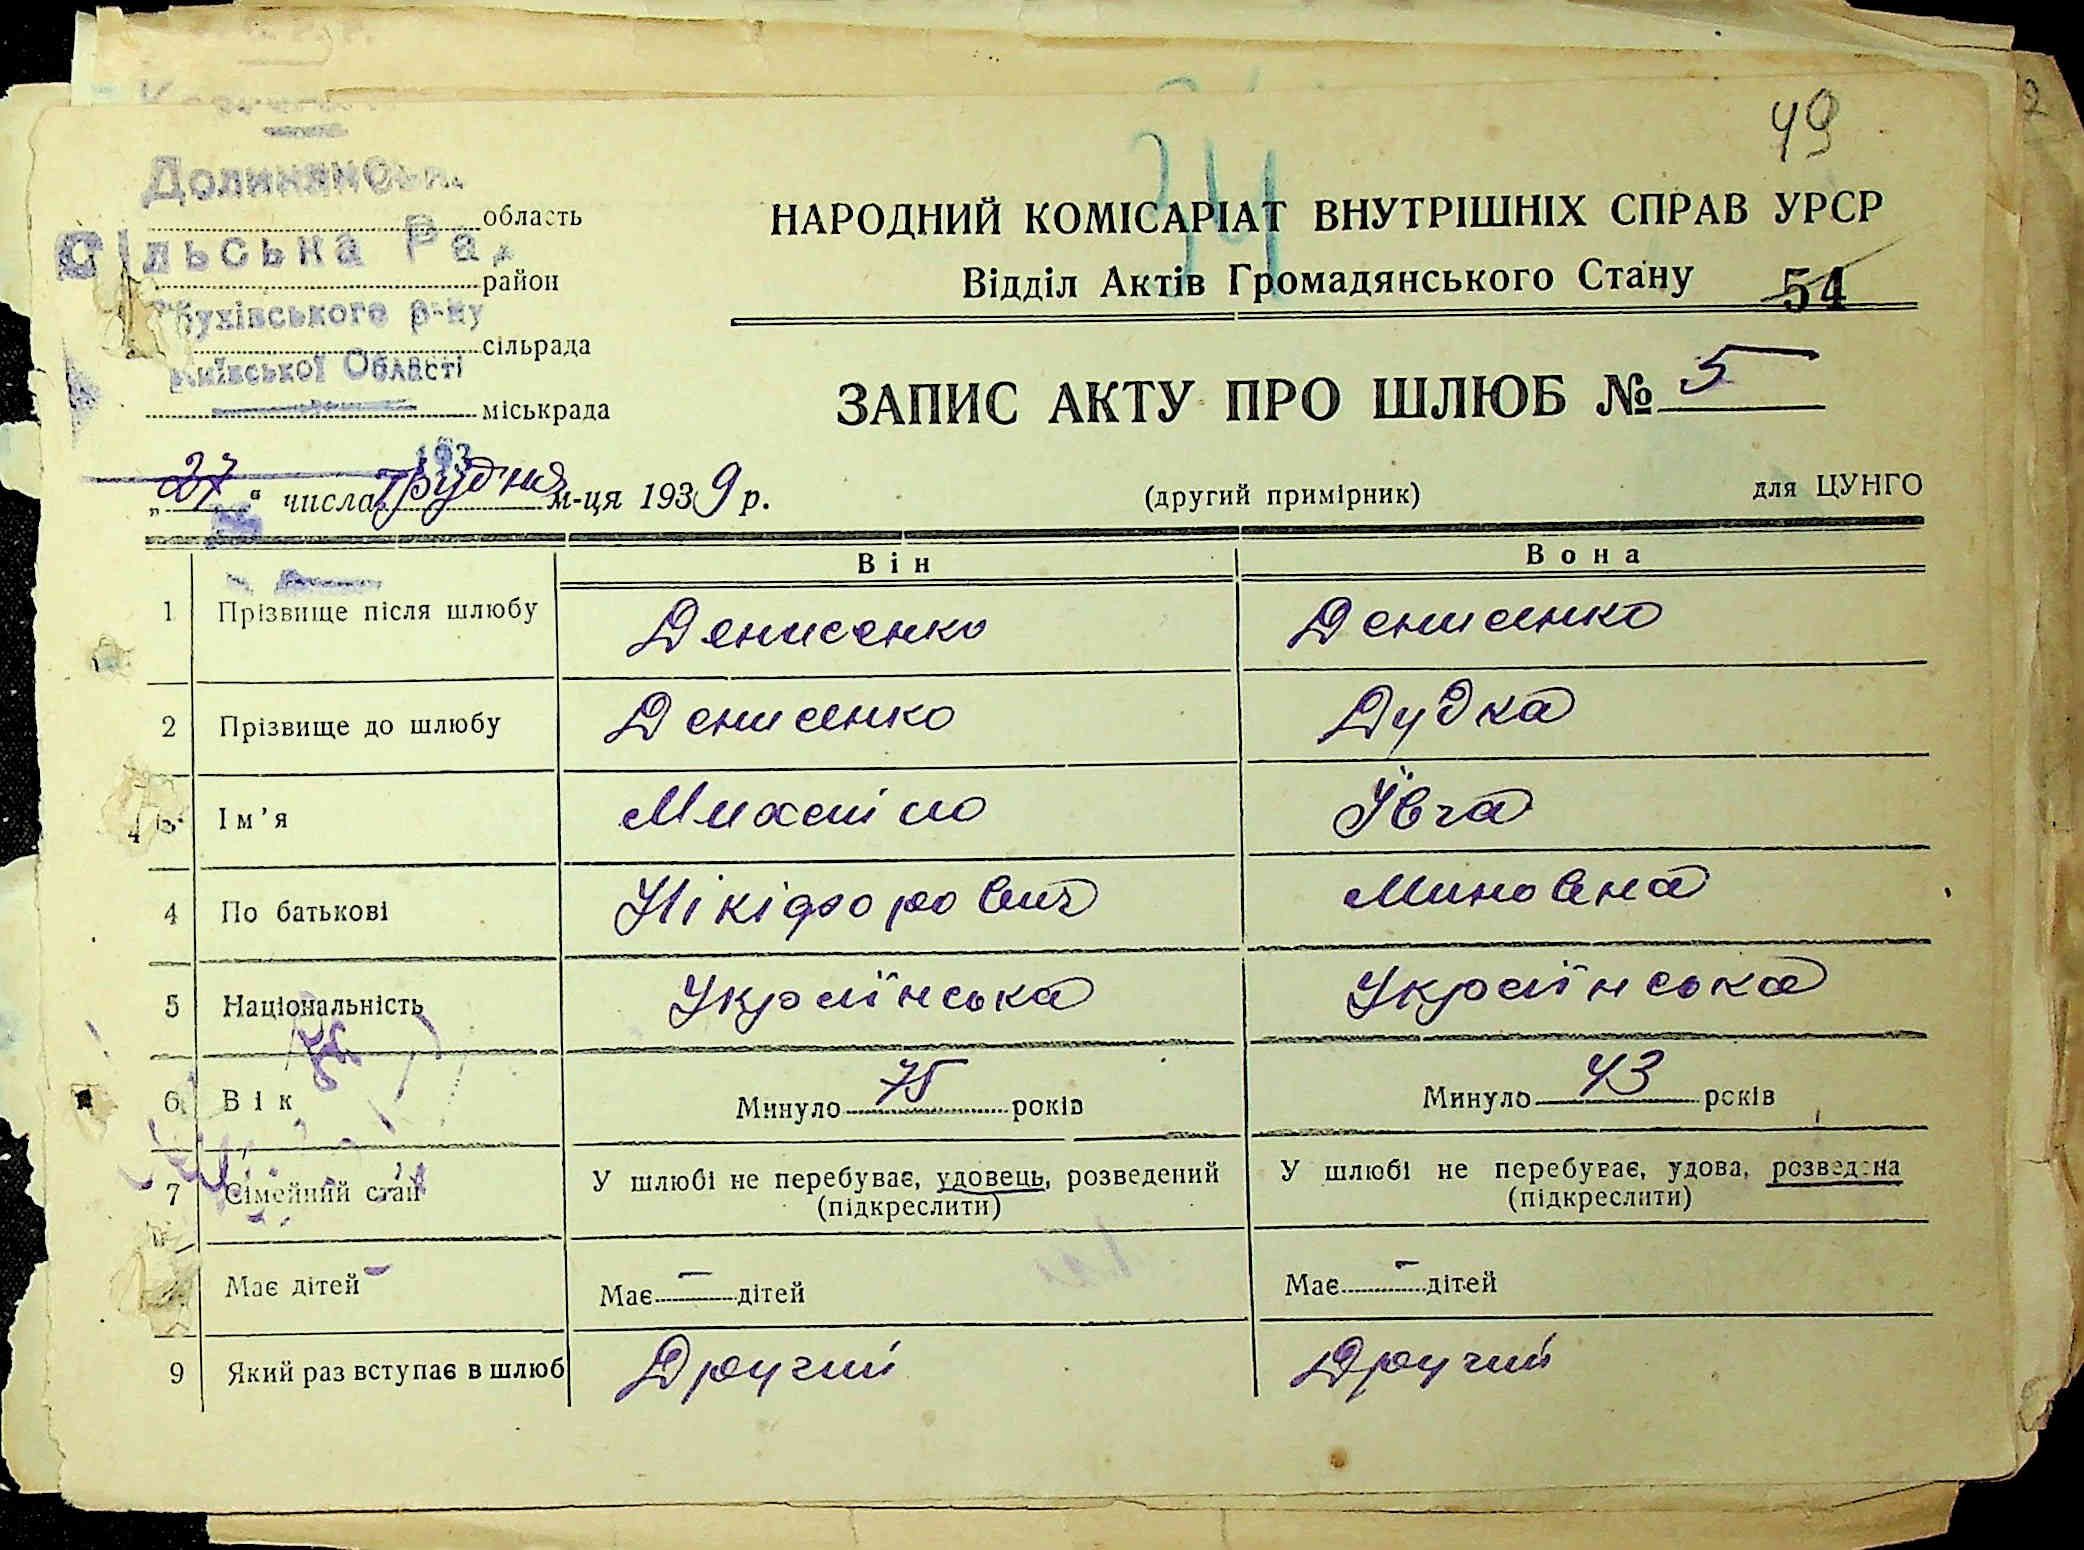 49
34
Долинянська
область
НАРОДНИЙ КОМІСАРІАТ ВНУТРІШНІХ СПРАВ УРСР
Сільська Рад
район
Відділ Актів Громадянського Стану 54
Обухівського р-ну
сільрада
Київської Області
міськрада
ЗАПИС АКТУ ПРО ШЛЮБ № 5
193
„27“ числа грудня м-ця 1939 р.
(другий примірник) для ЦУНГО
Він Вона
1 Прізвище після шлюбу Денисенко Денисенко
2 Прізвище до шлюбу Денисенко Дудка
3 Ім'я Михаіло Івга
4 По батькові Нікіфорович Миновна
5 Національність Українська Українська
6 Вік Минуло 75 років Минуло 43 років
7 Сімейний стан У шлюбі не перебуває, удовець, розведений У шлюбі не перебуває, удова, розведена
(підкреслити) (підкреслити)
Має дітей Має — дітей Має — дітей
9 Який раз вступає в шлюб Другий Другий